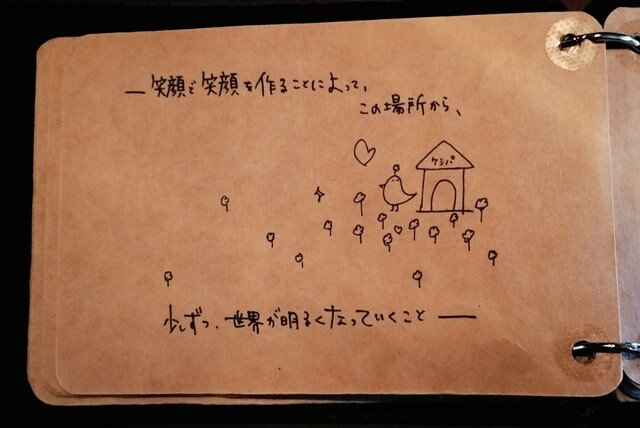 ― 笑顔で笑顔を作ることによって、
この場所から、
ケシパ
少しずつ、世界が明るくなっていくこと ―